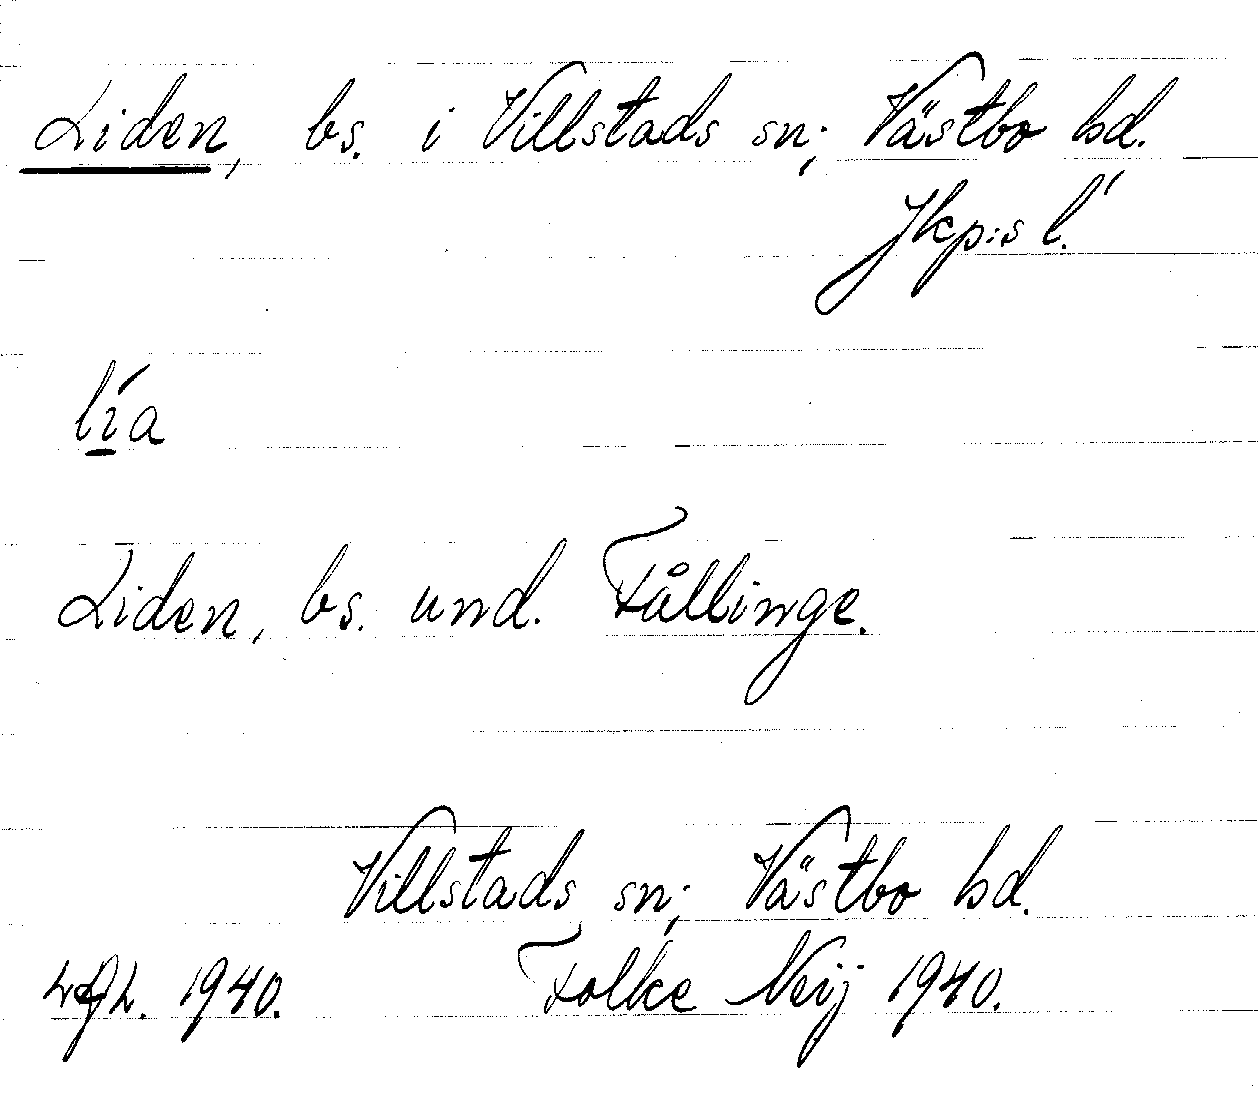 Liden, bs. i Villstads sn; Västbo hd.
Jkp:s l.
lía
Liden, bs. und. Fållinge.
Villstads sn; Västbo hd.
1940. Folke Neij 1940.